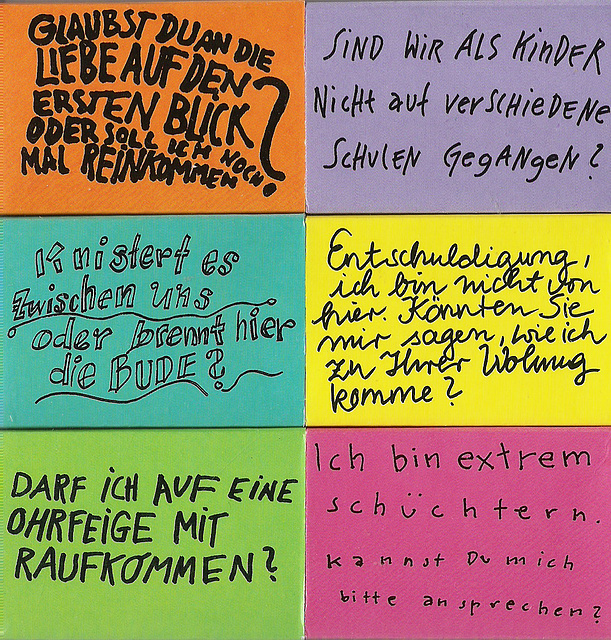 GLAUBST DU AN DIE
LIEBE AUF DEN
ERSTEN BLICK
ODER SOLL ICH NOCH
MAL REINKOMMEN?
SIND WIR ALS KINDER
Nicht auf VERSCHIEDENE
SCHULEN GegANgeN?
Knistert es
zwischen uns
oder brennt hier
die BUDE?
Entschuldigung,
ich bin nicht von
hier. Könnten Sie
mir sagen, wie ich
zu Ihrer Wohnung
komme?
DARF ICH AUF EINE
OHRFEIGE MIT
RAUFKOMMEN?
Ich bin extrem
schüchtern.
kannst Du mich
bitte ansprechen?